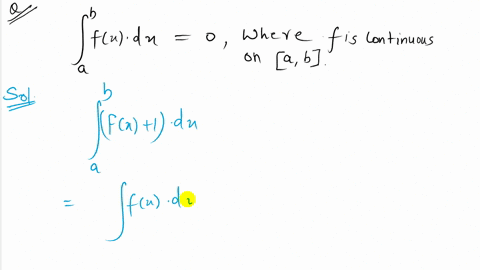 Q
∫_a^b f(x)·dx = 0, where f is continuous
on [a, b].
Sol.
∫_a^b (f(x)+1)·dx
= ∫ f(x)·dx